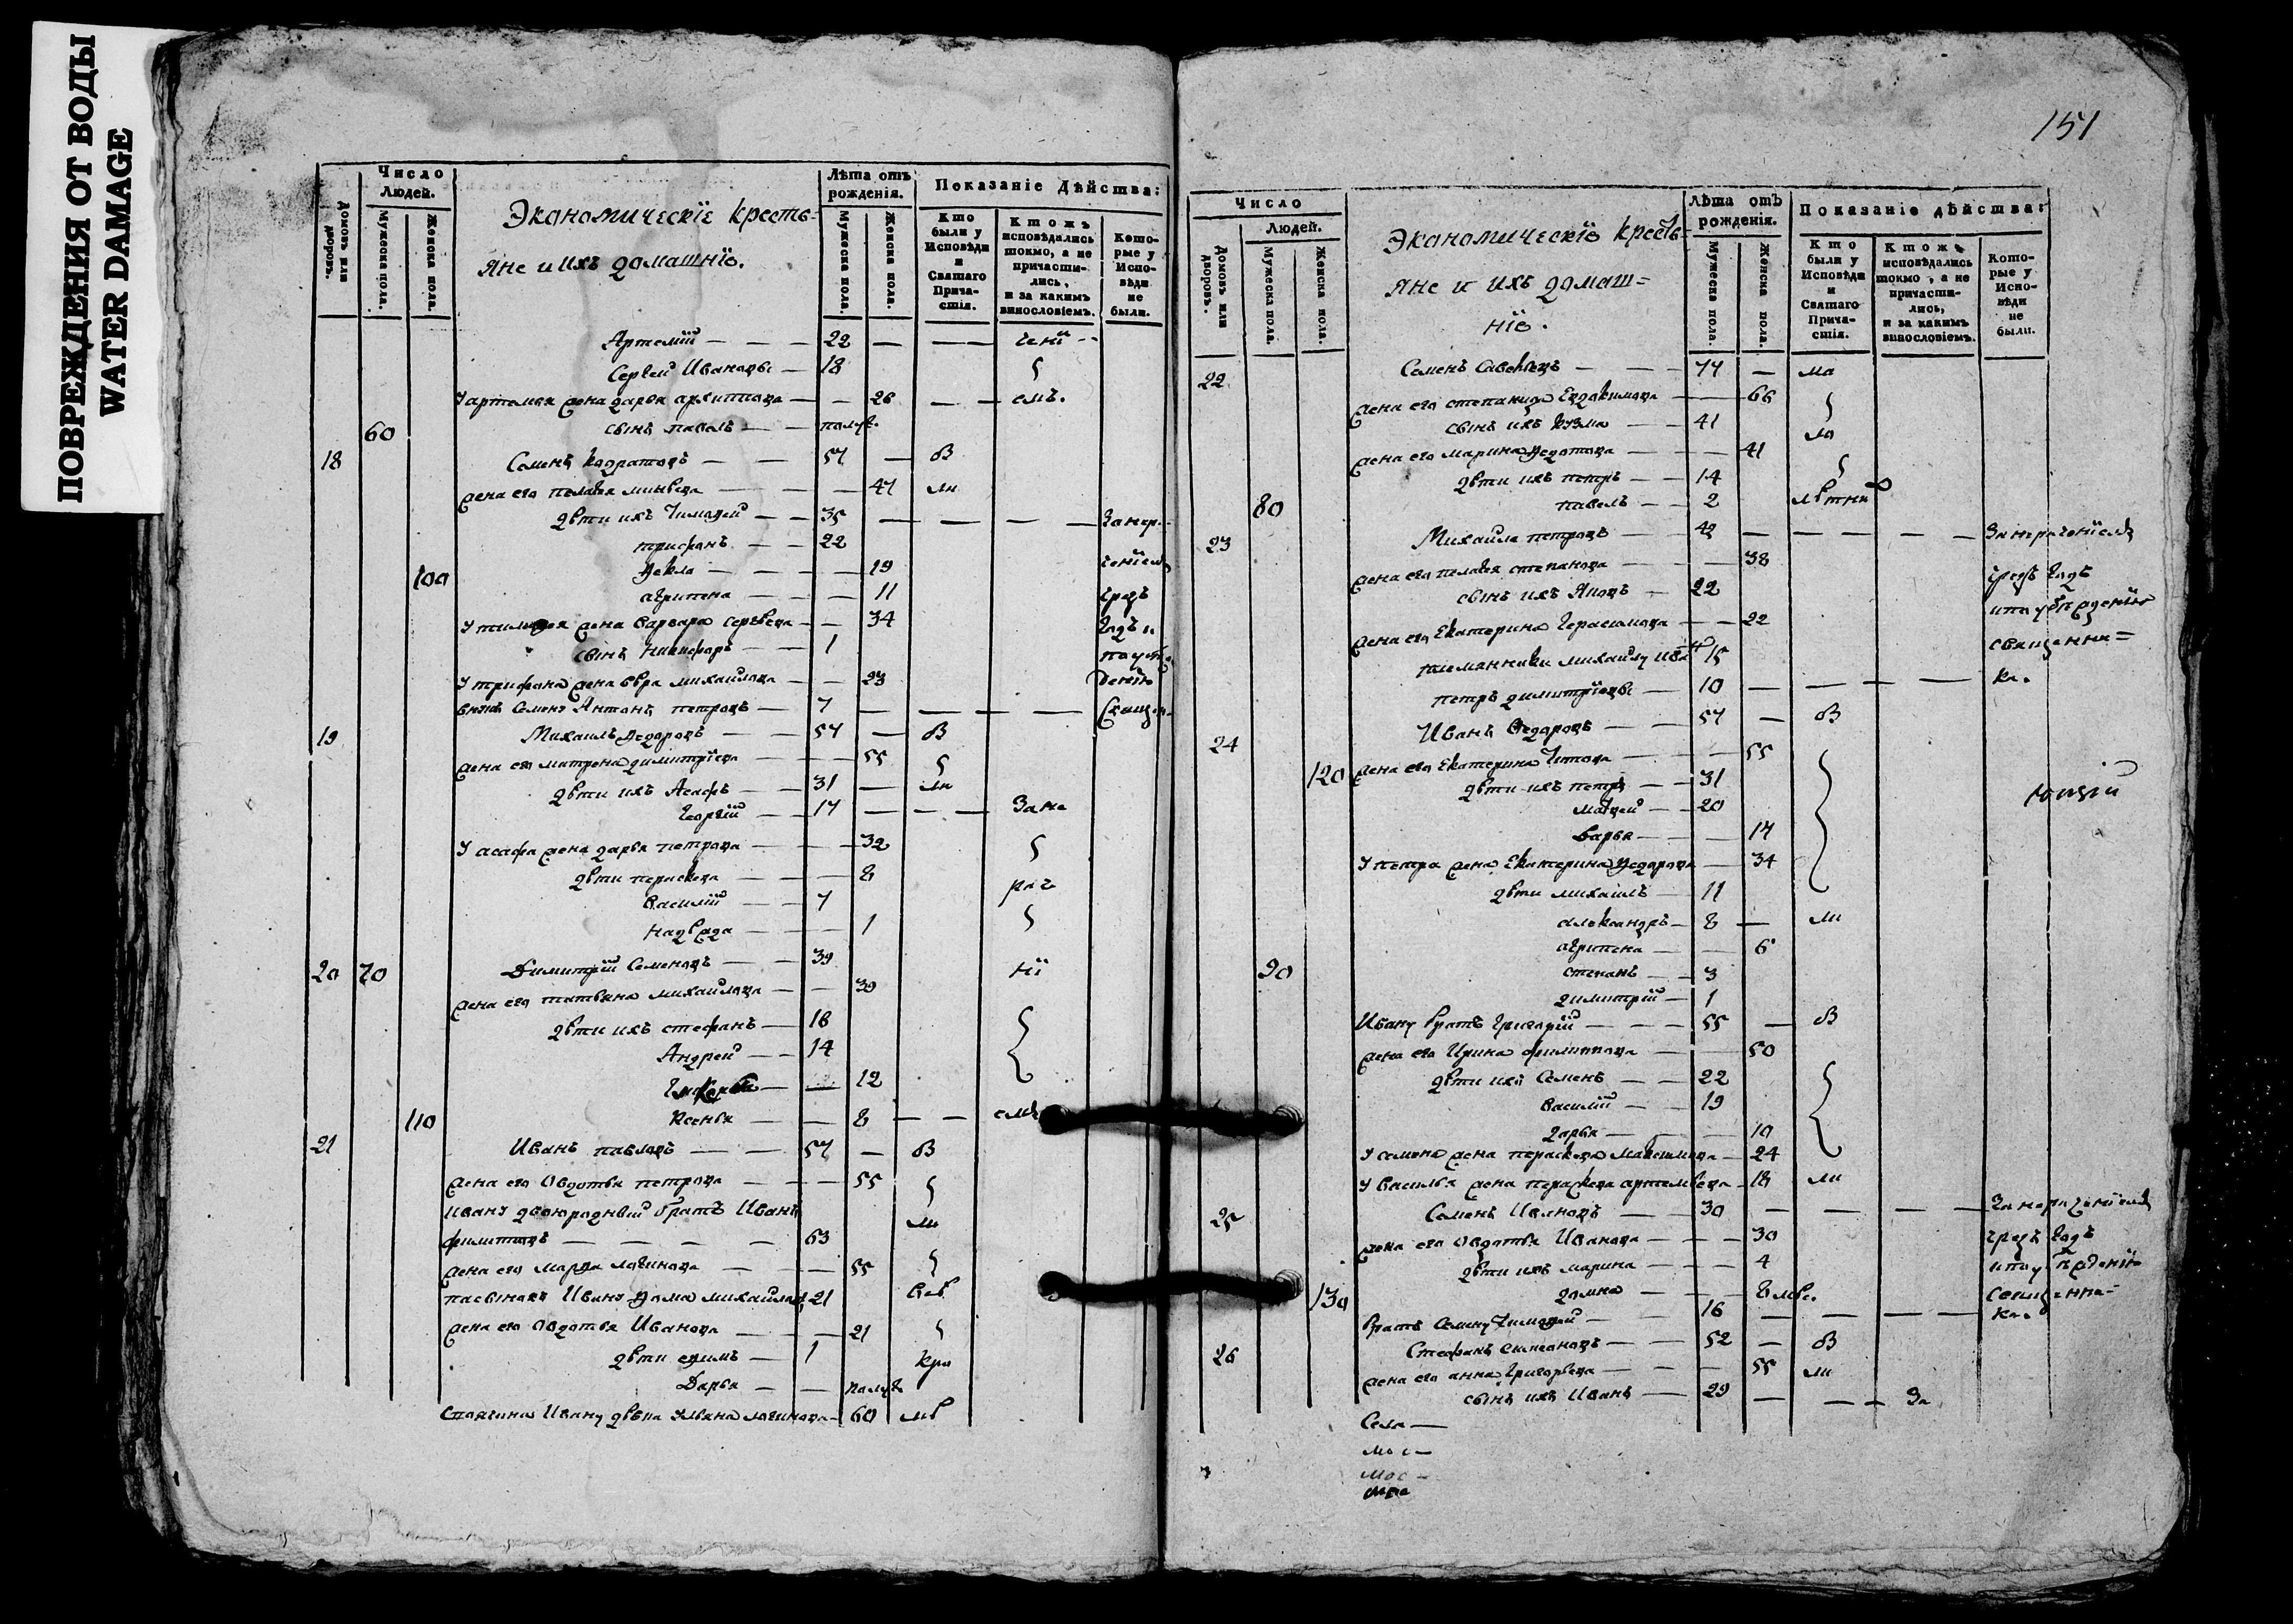 ПОВРЕЖДЕНИЯ ОТ ВОДЫ
WATER DAMAGE
Число Людей.
Домовъ или дворовъ.
Мужеска пола.
Женска пола.
Экономическіе кресть=
яне и ихъ домашніе.
Лѣта отъ рожденія.
Мужеска пола.
Женска пола.
Показаніе Дѣйства:
Кто были у Исповѣди и Святаго Прича-стія.
Ктожъ исповѣдались токмо, а не причасти-лись, и за какимъ винословіемъ.
Кото-рые у Испо-вѣди не были.
Артемій — — — 22 — — — ченї --
Сергей Ивановы — 18
У артемья жена дарья архипова — — 26 — — емъ.
60 сынъ павелъ — — полуг.
18 Семенъ — — 57 — В
жена его пелагея — — — 47 ли
дѣти ихъ Тимофей — — 35 — — — — Занер-
трифонъ — — 22
100 Фекла — — — — 19 ченіемъ
агрипена — — — 11 чрезъ
У тимофея жена варвара сергѣева — — 34 годъ и
сынъ Никифоръ — — 1
У трифона жена михаилова — — 23 дению
внукъ Семену Антонъ петровъ — 7 — — — —
19 Михаилъ Федоровъ — — 57 — В
жена его матрена димитріева — — — 55
дѣти ихъ Асафъ — — 31 — ли
Георгій — — 17 — — — Зане
У асафа жена дарья петрова — — — 32
дѣти параскева — — — 8 рач
Василій — — 7
надежда — — — 1
20 70 Димитрій Семеновъ — — 39 нї
жена его татьяна михаилова — — 39
дѣти ихъ стефанъ — 18
Андрей — — 14
— — 12
110 Ксенья — — 8 — — емъ
21 Иванъ павловъ — — 57 — В
жена его Овдотья петрова — — — 55
Ивану двоюродный братъ Иванъ ли
филиповъ — — — — — 63
жена его марфа логинова — — — 55
пасынокъ Ивану фома михаиловъ 21
жена его Овдотья Иванова — — — 21
дѣти ефимъ — 1 кро
Дарья — — полуг.
Ивану ульяна логинова — 60 мѣ
151
Число
Людей.
Домовъ или дворовъ.
Мужеска пола.
Женска пола.
Экономическіе кресть-
яне и ихъ домаш=
ніе.
Лѣта отъ рожденія.
Мужеска пола.
Женска пола.
Показаніе дѣйства:
Кто были у Исповѣди и Святаго Прича-стія.
Ктожъ исповѣдались токмо, а не причасти-лись, и за какимъ винословіемъ.
Кото-рые у Испо-вѣди не были.
22 Семенъ Савельевъ — — — 77 — ма
жена его степанида Евдокимова — — 66
сынъ ихъ кузма — — 41 ло
жена его марина Федотова — — — 41
дѣти ихъ петръ — — 14
80 павелъ — — 2 лѣтни
23 Михаила петровъ — — 42 — — — — — Занераченіемъ
жена его пелагея степанова — — — 38 чрезъ годъ
сынъ ихъ Яковъ — 22
жена его Екатерина Герасимова — — 22 священни=
племянники михаилу Иванъ 15
петръ димитріевы — 10 — — — — ка.
24 Иванъ Федоровъ — — 57 — В
120 жена его Екатерина Титова — — — 55
дѣти ихъ петръ — 31
матвей — — 20
варвя — — — 17
У петра жена Екатерина Федорова — 34
дѣти михаилъ — 11
александръ — 8 — ли
агрипена — — 6
90 степанъ — — 3
димитрій — 1
Ивану братъ григорій — — — 55 — В
жена его Ирина филипова — — 50
дѣти ихъ Семенъ — — 22
Василій — — 19
Дарья — — — 10
У семена жена параскева Максимова — 24
У василья жена параскева артемьева — 18 ли
25 Семенъ Ивановъ — — 30 — — — — Занераченіемъ
жена его Овдотья Иванова — — — 30 чрезъ годъ
дѣти ихъ марина — — 4
130 домна — — — 8 мѣс. священни-
братъ Семену Тимофей — — 16 — — — — ка.
26 Стефанъ симеоновъ — — 52 — В
жена его анна григорьева — — — 55 ли
сынъ ихъ Иванъ — — 29 — — — За
Села —